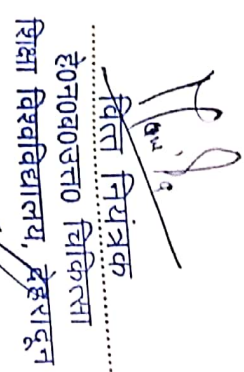 वित्त नियंत्रक
हे0न0ब0उत्त0 चिकित्सा
शिक्षा विश्वविद्यालय, देहरादून